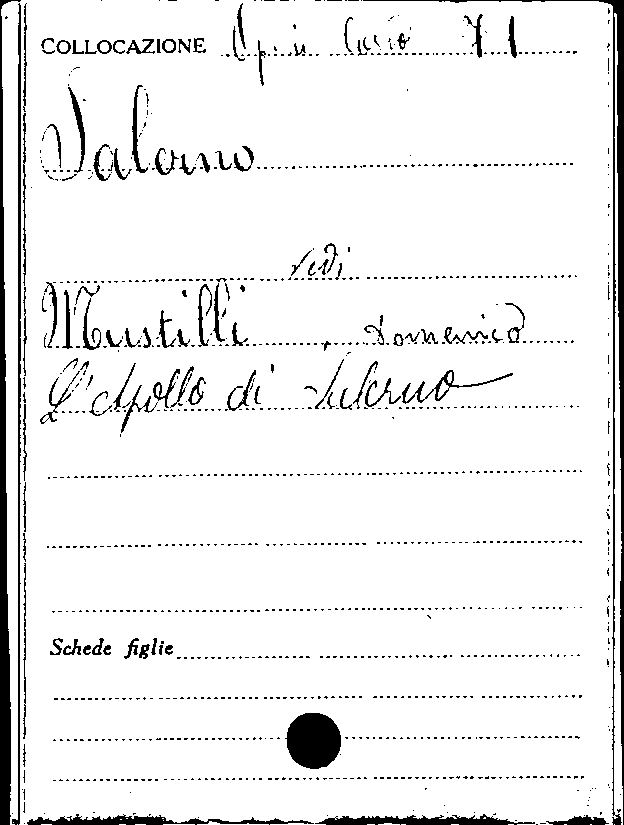 COLLOCAZIONE Op. in Cassa 71
Salerno
vedi
Mustilli, Domenico
L'Apollo di Salerno
Schede figlie